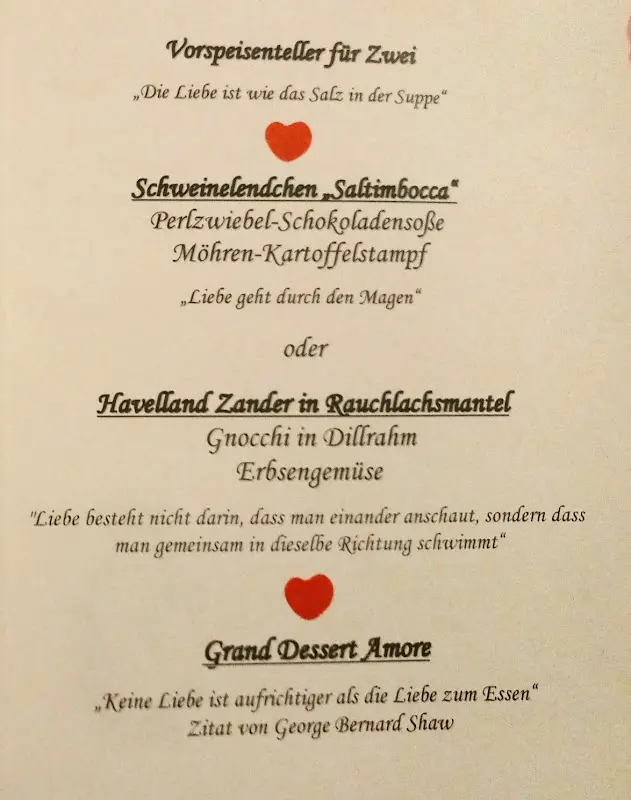 Vorspeisenteller für Zwei
„Die Liebe ist wie das Salz in der Suppe“
Schweinelendchen „Saltimbocca“
Perlzwiebel-Schokoladensoße
Möhren-Kartoffelstampf
„Liebe geht durch den Magen“
oder
Havelland Zander in Rauchlachsmantel
Gnocchi in Dillrahm
Erbsengemüse
"Liebe besteht nicht darin, dass man einander anschaut, sondern dass
man gemeinsam in dieselbe Richtung schwimmt“
Grand Dessert Amore
„Keine Liebe ist aufrichtiger als die Liebe zum Essen“
Zitat von George Bernard Shaw